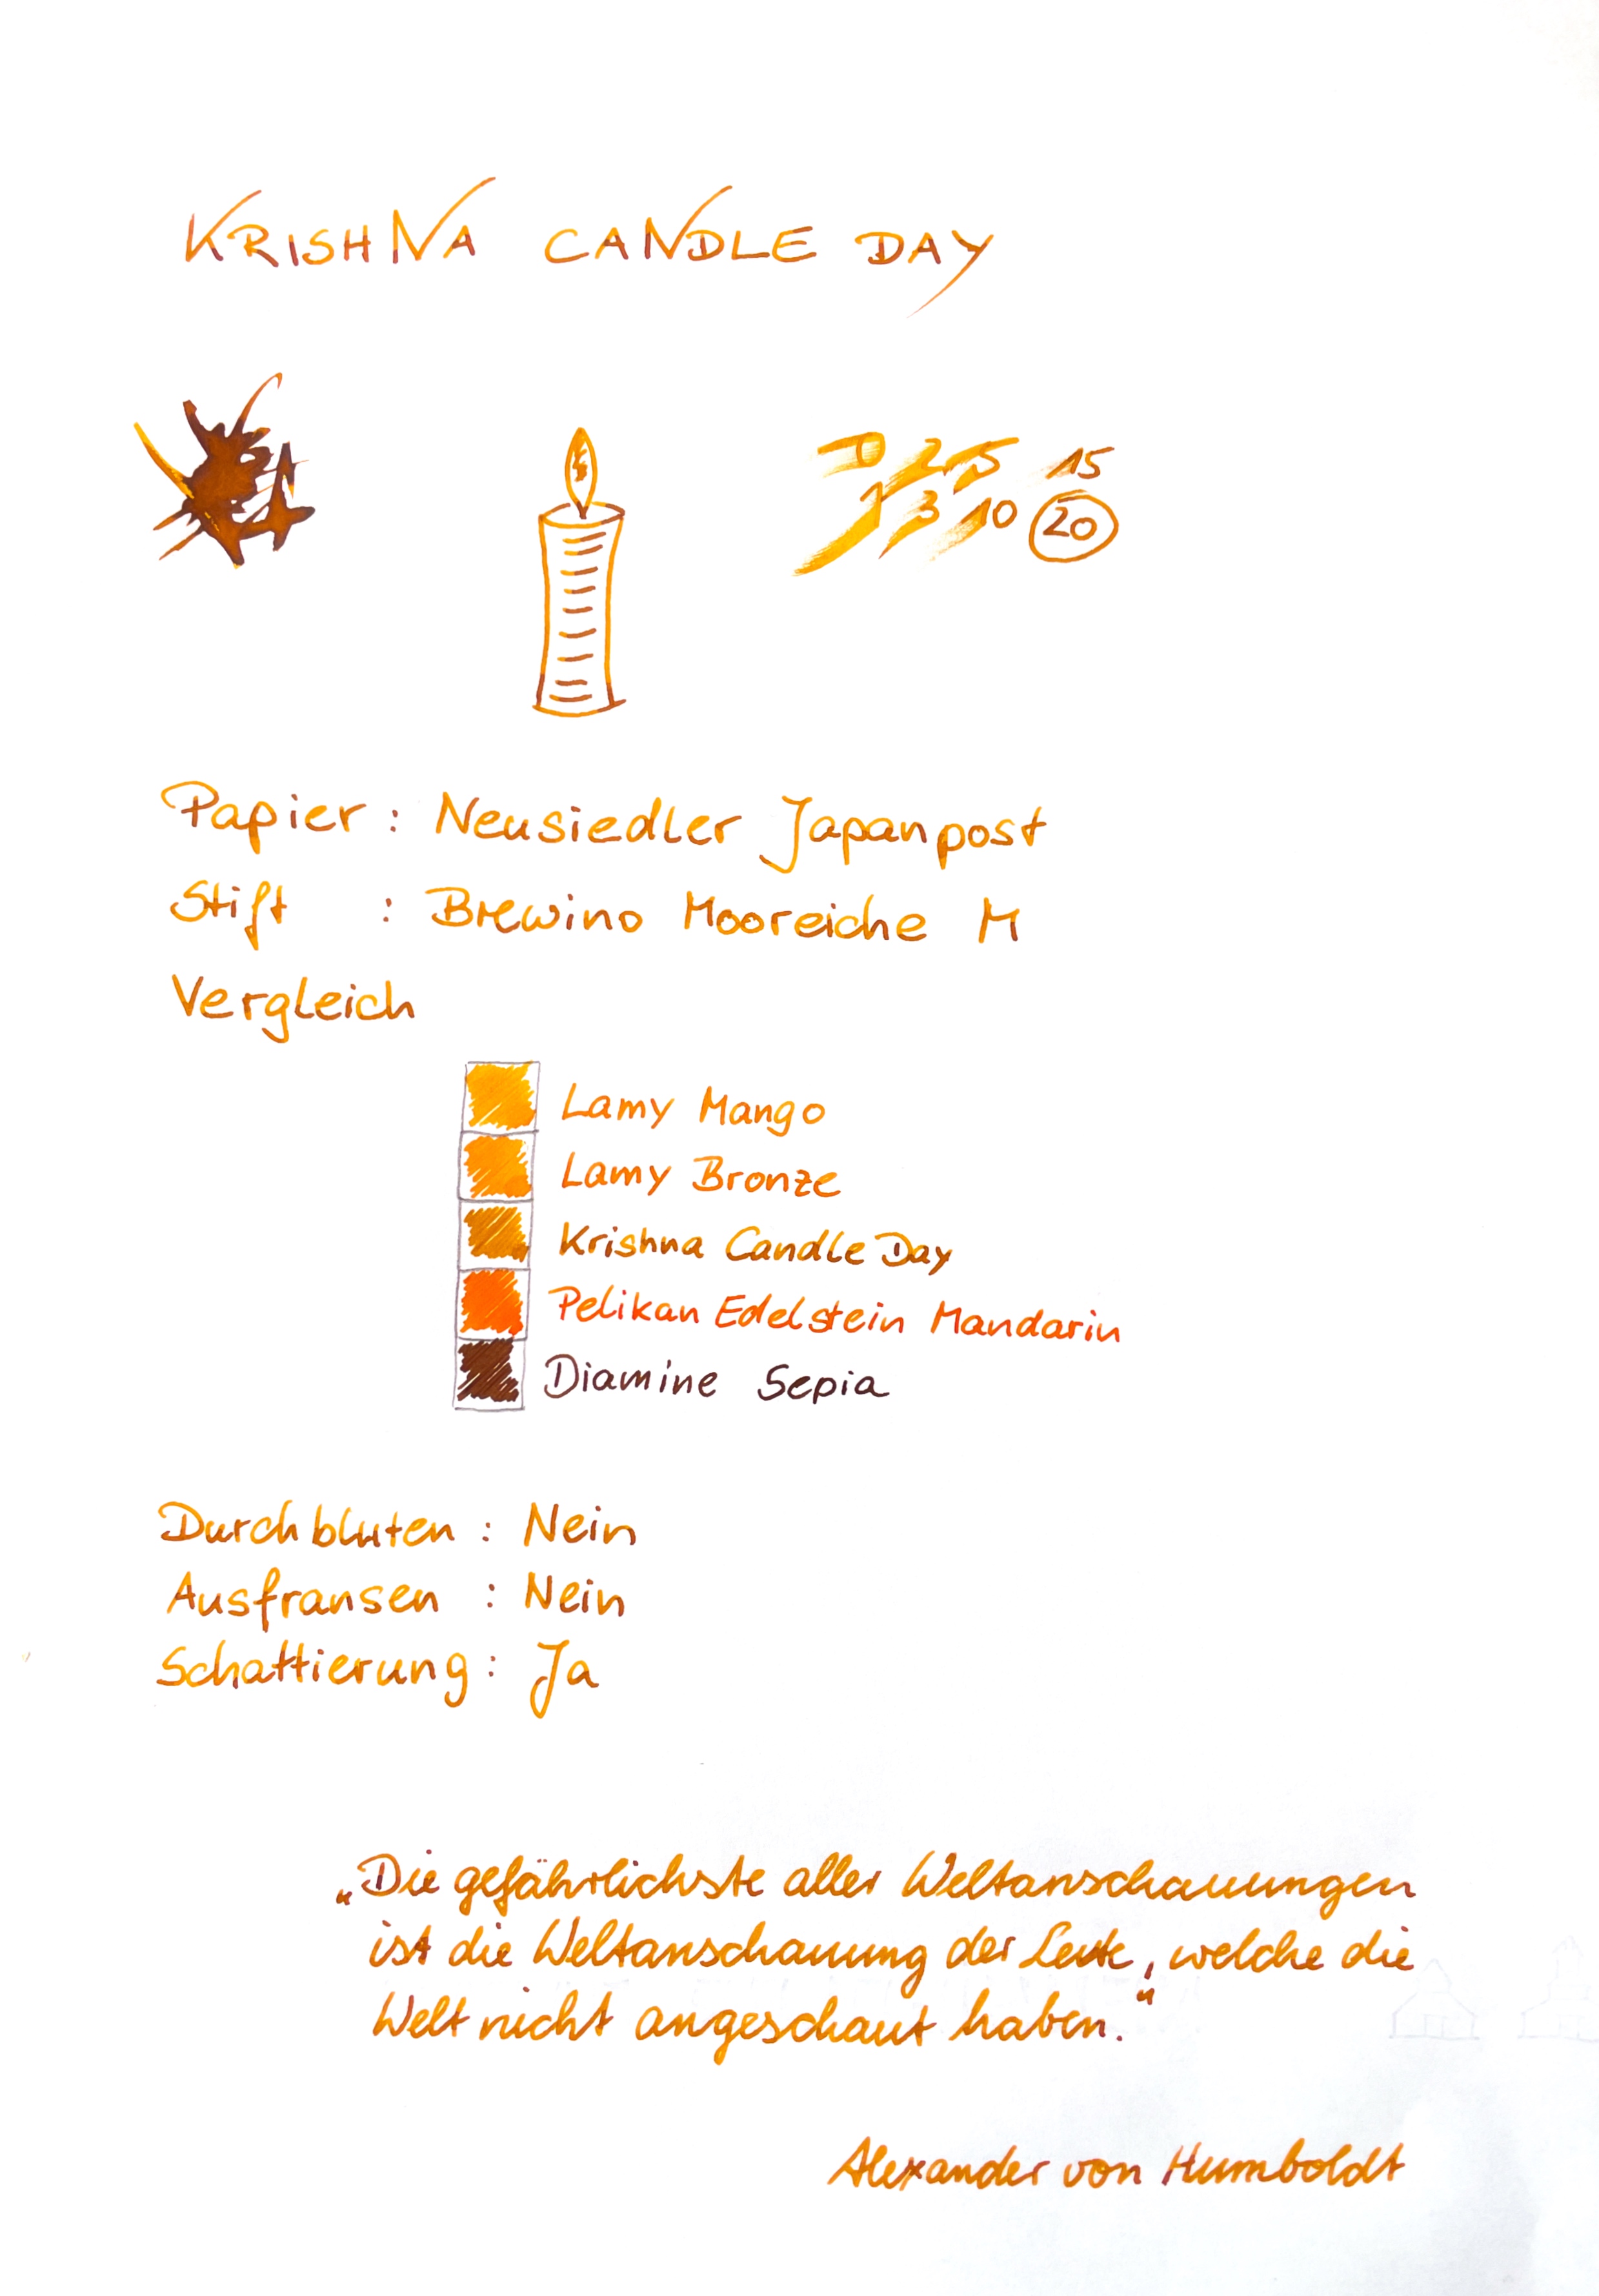 KRISHNA CANDLE DAY
0 2 5 15
1 3 10 20
Papier : Neusiedler Japanpost
Stift : Brewino Mooreiche M
Vergleich
Lamy Mango
Lamy Bronze
Krishna Candle Day
Pelikan Edelstein Mandarin
Diamine Sepia
Durchbluten : Nein
Ausfransen : Nein
Schattierung : Ja
„Die gefährlichste aller Weltanschauungen
ist die Weltanschauung der Leute, welche die
Welt nicht angeschaut haben.“
Alexander von Humboldt